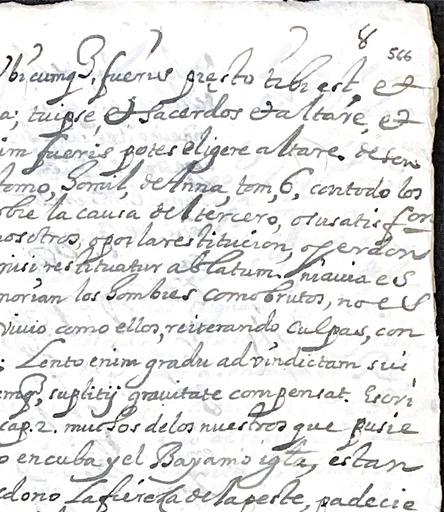 8 566
Vbicumq, fueris presto tibi est, et
a; tu ipse et sacerdos et altare, et
im fueris potes eligere altare. de son
tomo, homil, de Anna, tom, 6, con todo los
obre la causa del tercero, o su satisfon
nosotros, o por la restitucion, o perdon
nisi restituatur ablatum. ni auia es
morian los hombres como brutos, no es
viuio como ellos, reiterando culpas, con
; Lento enim gradu ad vindictam sui
emq, suplitij grauitate compensat. Escri
cap. 2. muchos de los nuestros que pusie
o en cuba y el Bayamo igla, estan
dono La fiereza de la peste, padecie